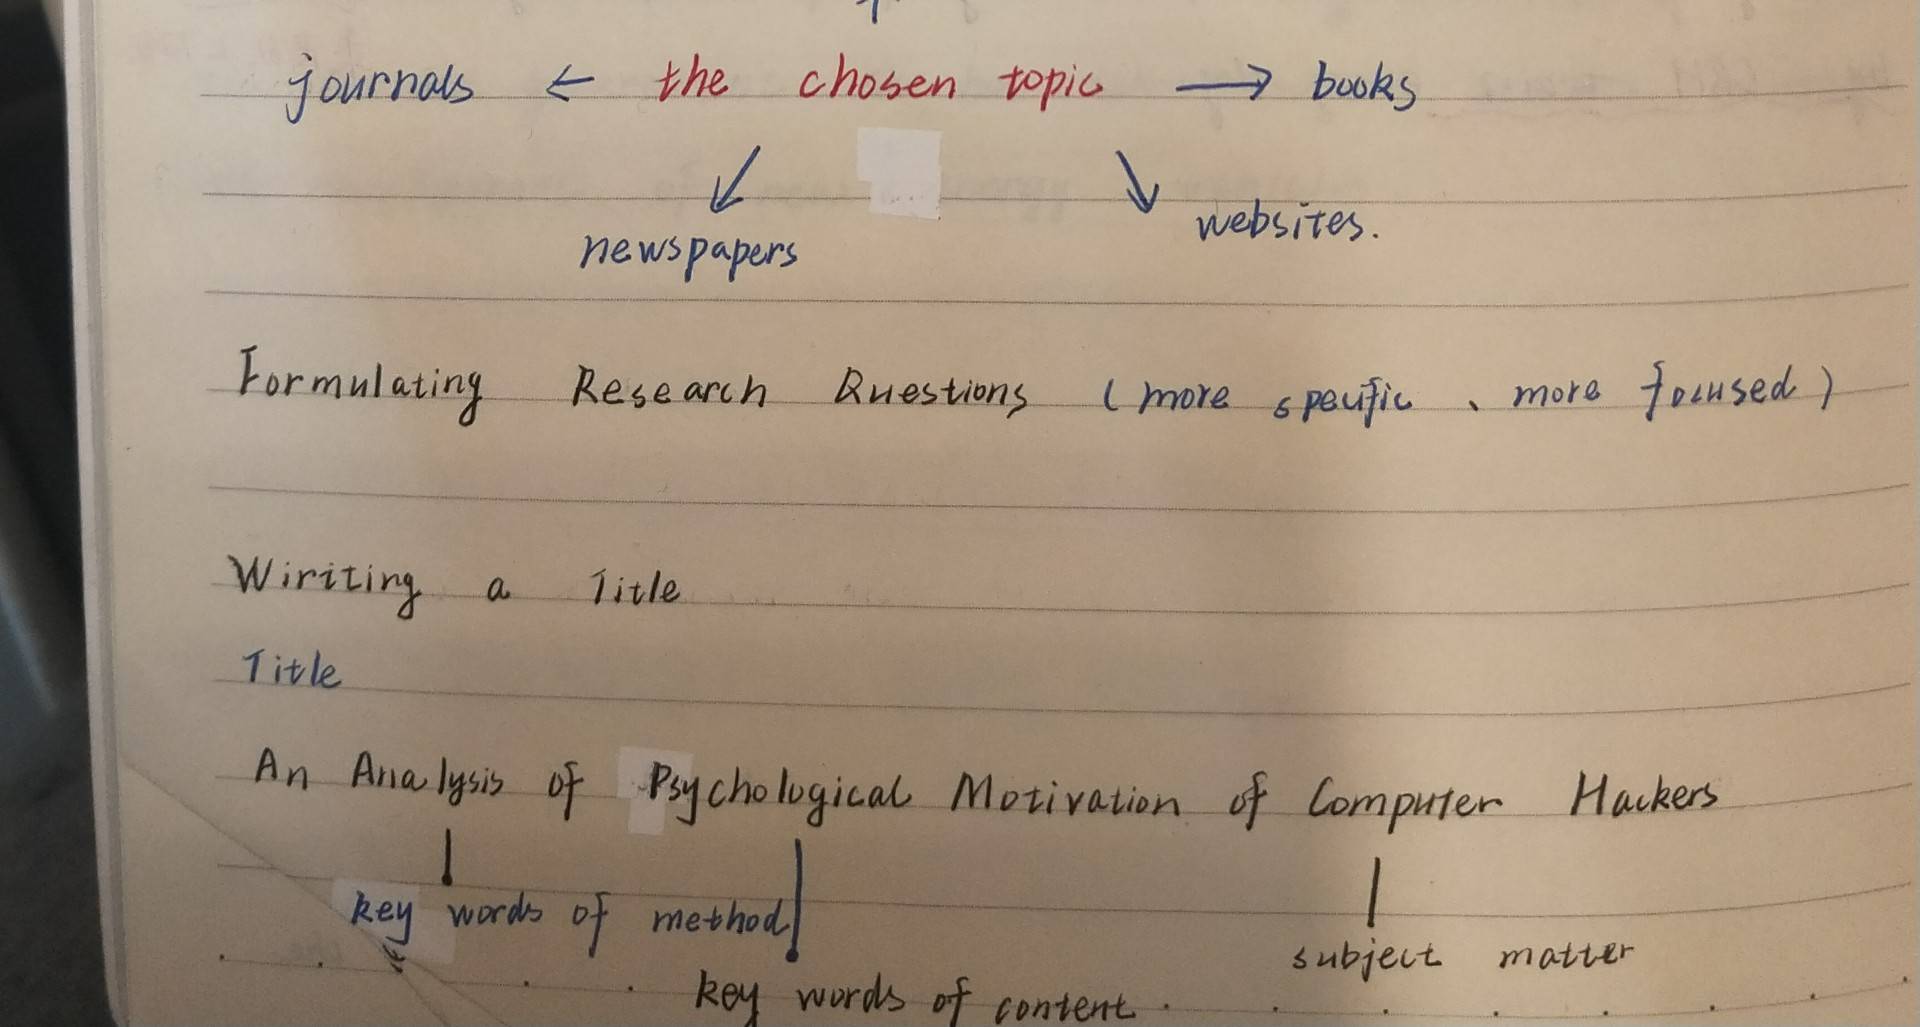 journals ← the chosen topic → books
newspapers
websites.
Formulating Research Questions (more specific、more focused)
Wiriting a Title
Title
An Analysis of Psychological Motivation of Computer Hackers
key words of method
subject matter
key words of content